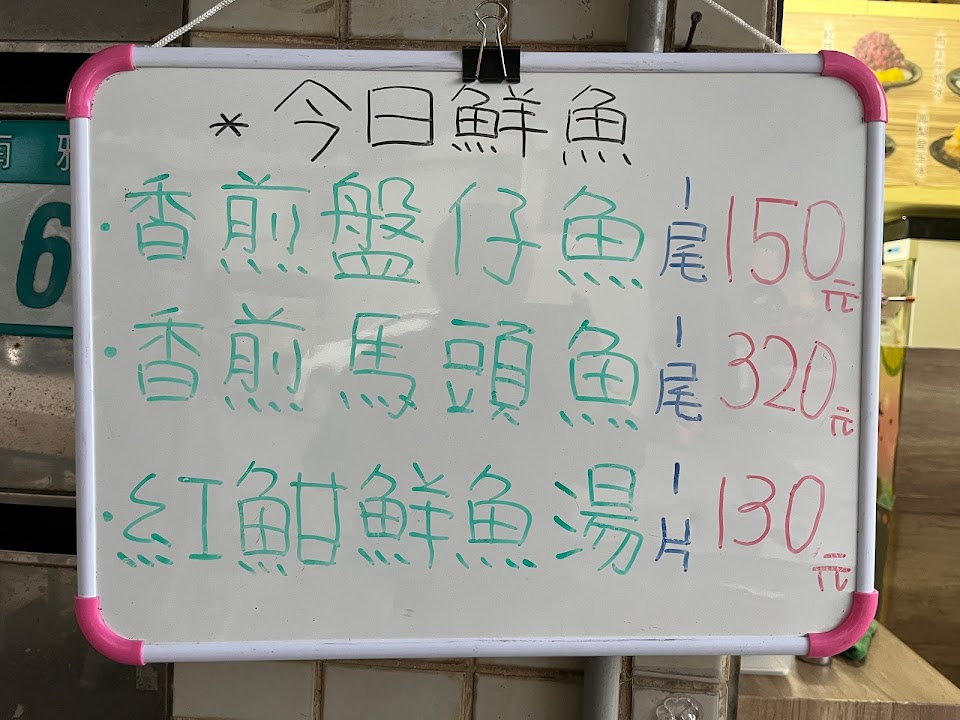 * 今日鮮魚
·香煎盤仔魚 一尾 150元
·香煎馬頭魚 一尾 320元
·紅魽鮮魚湯 一片 130元
南雅
6